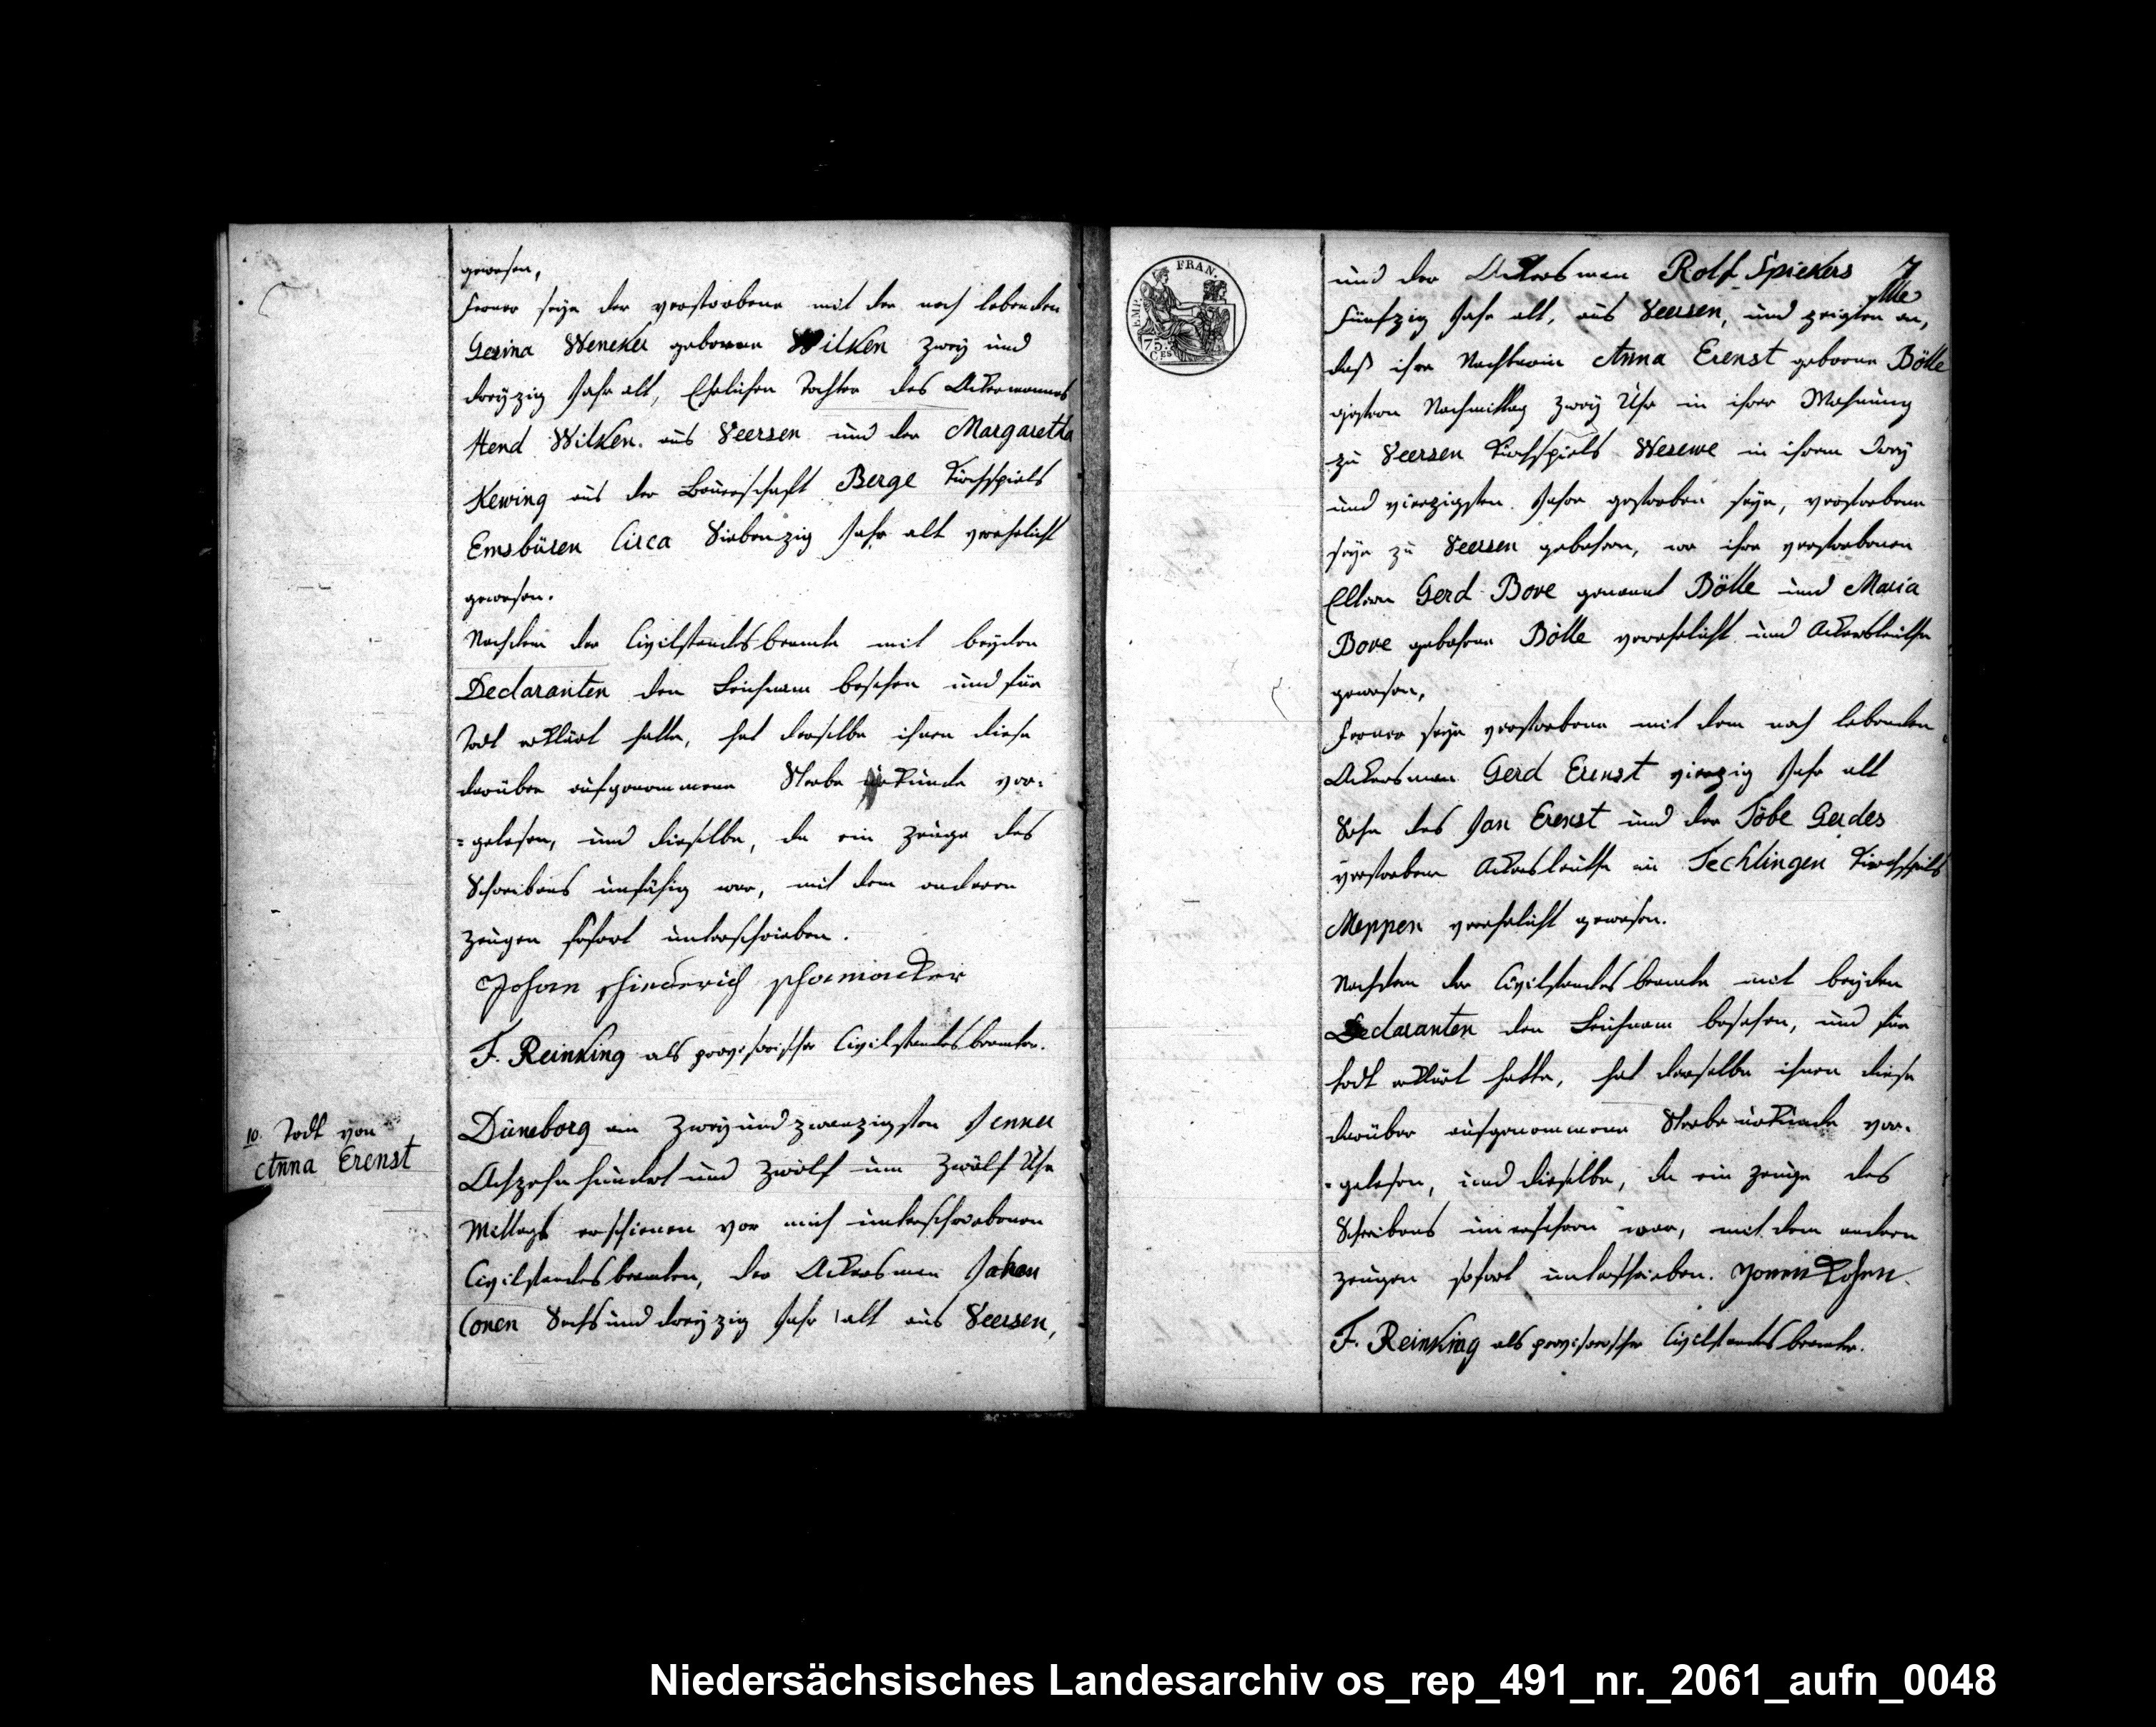 gewesen,
Ferner seye der verstorbene mit der noch lebenden
Gesina Weneker geborene Wilken zwey und
dreyzig Jahr alt, Ehelichen Tochter des Ackermannes
Hend Wilken aus Veersen und der Margaretha
Kewing aus der Bauerschaft Berge Kirchspiels
Emsbüren Circa Siebenzig Jahr alt verehelicht
gewesen.
Nachdem der Civilstandsbeamte mit beyden
Declaranten den Leichnam besehen und für
Todt erklärt hatte, hat derselbe ihnen diese
darüber aufgenommene Sterbe urkunde vor:
=gelesen, und dieselbe, da ein Zeuge des
Schreibens unfähig war, mit dem anderen
Zeugen sofort unterschrieben.
Johan
F. Reinking als provisorischer Civilstandesbeamter.
10. Todt von
Anna Erenst
Düneborg am zwey und zwanzigsten Jenner
Achzehnhundert und zwölf um zwölf Uhr
Mittags erschienen vor mich unterschriebenen
Civilstandesbeamten, der Ackersman Johan
Conen Sechs und dreyzig Jahr alt aus Veersen,
EMP. FRAN.
75. CES
7
und der Ackersman Rolf Spiekers
fünfzig Jahr alt, aus Veersen, und zeigten an,
daß ihre Nachbarin Anna Erenst geborne Bölle
gestern Nachmittag zwey Uhr in ihrer Wohnung
zu Veersen Kirchspiels Wesewe in ihrem drey
und vierzigsten Jahre gestorben seye, verstorbene
seye zu Veersen gebohren, wo ihre verstorbenen
Eltern Gerd Bove genannt Bölle und Maria
Bove gebohrne Bölle verehelicht und Ackersleuthe
gewesen,
Ferner seye verstorbene mit dem noch lebenden
Ackersman Gerd Erenst vierzig Jahr alt
Sohn des Jan Erenst und der Töbe Gerdes
verstorbene Ackersleuthe in Techlingen Kirchspiels
Meppen verehelicht gewesen.
Nachdem der Civilstandesbeamte mit beyden
Declaranten den Leichnam besehen, und für
todt erklärt hatte, hat derselbe ihnen diese
darüber aufgenommene Sterbeurkunde vor.
=gelesen, und dieselbe, da ein Zeuge des
Schreibens unerfahren war, mit dem andern
Zeugen sofort unterschrieben.
F. Reinking als provisorischer Civilstandsbeamter.
Niedersächsisches Landesarchiv os_rep_491_nr._2061_aufn_0048